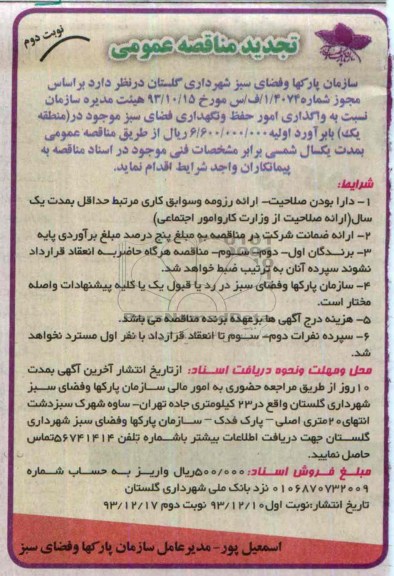 نوبت دوم
تجدید مناقصه عمومی
سازمان پارکها وفضای سبز شهرداری گلستان درنظر دارد براساس
مجوز شماره۱/۴۰۷۴/ف/س مورخ ۹۳/۱۰/۱۵ هیئت مدیره سازمان
نسبت به واگذاری امور حفظ ونگهداری فضای سبز موجود در(منطقه
یک) بابرآورد اولیه۶/۶۰۰/۰۰۰/۰۰۰ ریال از طریق مناقصه عمومی
بمدت یکسال شمسی برابر مشخصات فنی موجود در اسناد مناقصه به
پیمانکاران واجد شرایط اقدام نماید.
شرایط:
۱- دارا بودن صلاحیت- ارائه رزومه وسوابق کاری مرتبط حداقل بمدت یک
سال(ارائه صلاحیت از وزارت کاروامور اجتماعی)
۲- ارائه ضمانت شرکت در مناقصه به مبلغ پنج درصد مبلغ برآوردی پایه
۳- برندگان اول- دوم- سوم- مناقصه هرگاه حاضربه انعقاد قرارداد
نشوند سپرده آنان به ترتیب ضبط خواهد شد.
۴- سازمان پارکها وفضای سبز در رد یا قبول یک یا کلیه پیشنهادات واصله
مختار است.
۵- هزینه درج آگهی ها برعهده برنده مناقصه می باشد.
۶- سپرده نفرات دوم- سوم تا انعقاد قرارداد با نفر اول مسترد نخواهد
شد.
محل ومهلت ونحوه دریافت اسناد: ازتاریخ انتشار آخرین آگهی بمدت
۱۰روز از طریق مراجعه حضوری به امور مالی سازمان پارکها وفضای سبز
شهرداری گلستان واقع در۲۳ کیلومتری جاده تهران- ساوه شهرک سبزدشت
انتهای۲۰متری اصلی - پارک فدک - سازمان پارکها وفضای سبز شهرداری
گلستان جهت دریافت اطلاعات بیشتر باشماره تلفن ۵۶۷۴۱۴۱۴تماس
حاصل نمایید.
مبلغ فروش اسناد: ۵۰۰/۰۰۰ریال واریز به حساب شماره
۰۱۰۶۸۷۰۷۳۲۰۰۹ نزد بانک ملی شهرداری گلستان
تاریخ انتشار:نوبت اول۹۳/۱۲/۱۰ نوبت دوم ۹۳/۱۲/۱۷
اسمعیل پور- مدیرعامل سازمان پارکها وفضای سبز